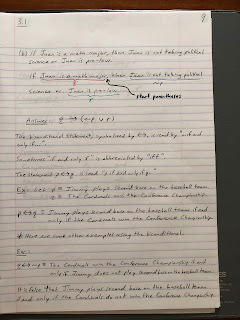 3.1
9
(b) If Juan is a math major, then Juan is not taking political
science or Juan is pre-law.
If Juan is a math major, then Juan is not taking political
science or Juan is pre-law.
start parentheses
Answer:
The biconditional statement, symbolized by ↔, is read by "if and
only if..."
Sometimes "if and only if" is abbreviated by "iff".
The statement p ↔ q is read "p if and only if q."
Ex: Let p = Jimmy plays second base on the baseball team
q = The Cardinals win the Conference Championship.
p ↔ q = Jimmy plays second base on the baseball team if and
only if the Cardinals win the Conference Championship.
* Here are some other examples using the biconditional.
Ex:
q ↔ ~p = The Cardinals win the Conference Championship if and
only if Jimmy does not play second base on the baseball team.
It is false that Jimmy plays second base on the baseball team
if and only if the Cardinals do not win the Conference Championship